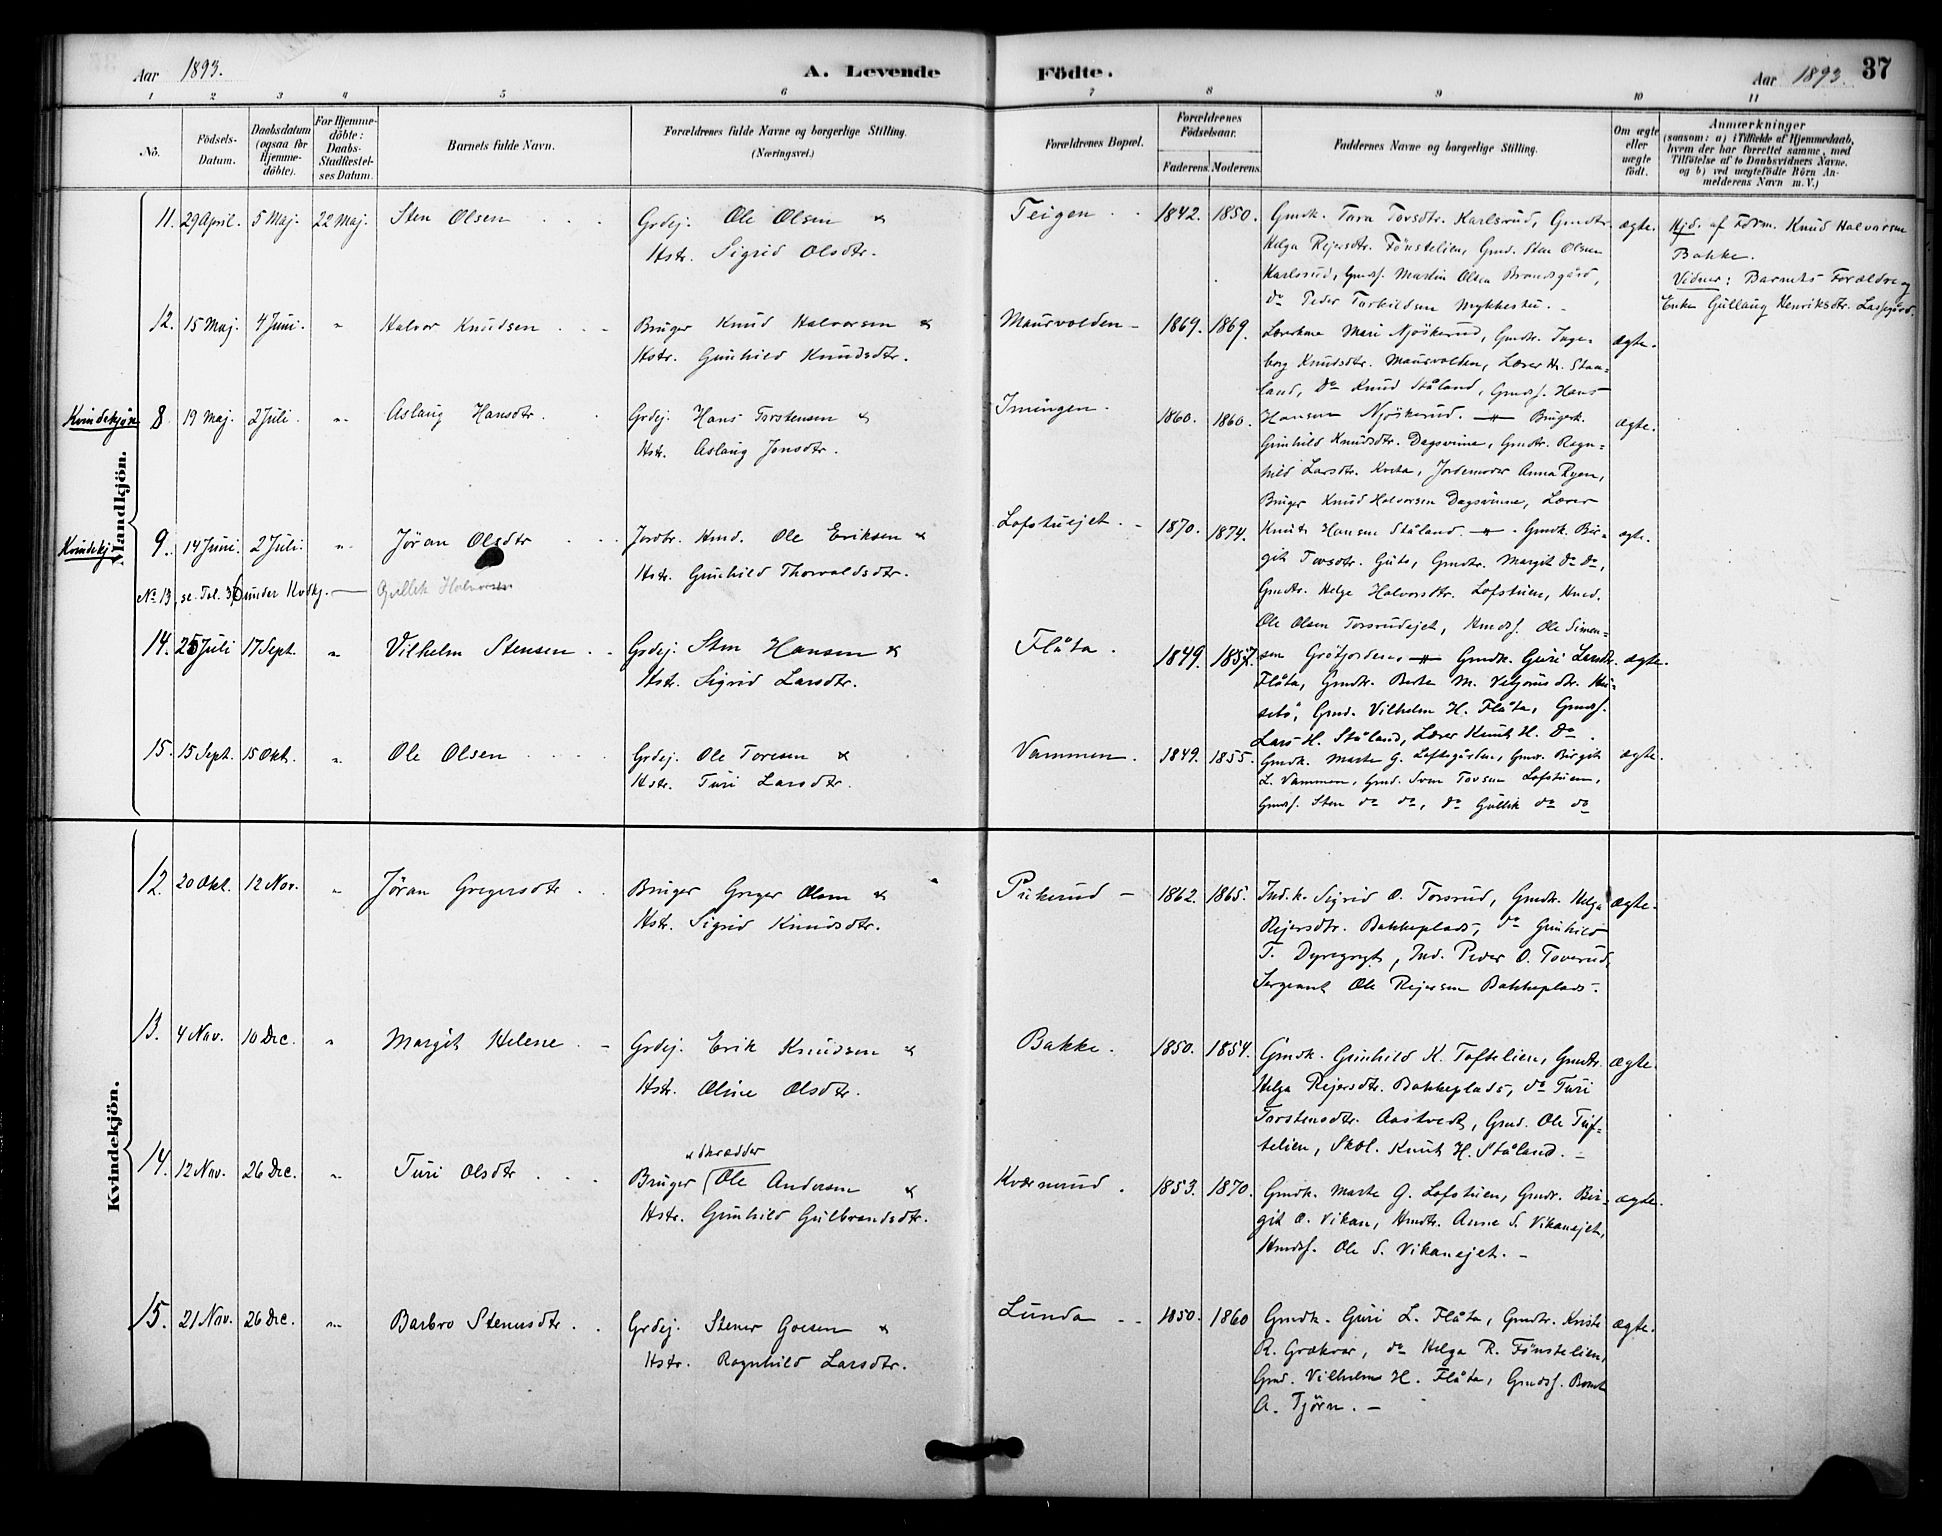 Aar 1893. A. Levende Födte. Aar 1893. 37
1 2 3 4 5 6 7 8 9 10 11
Nô.
Födsels-
Datum.
Daabsdatum
(ogsaa för
Hjemme-
döbte).
For Hjemme-
döbte:
Daabs-
Stadfæstel-
ses Datum.
Barnets fulde Navn.
Forældrenes fulde Navne og borgerlige Stilling.
(Næringsvei.)
Forældrenes Bopæl.
Forældrenes
Födselsaar.
Faderens. Moderens.
Faddernes Navne og borgerlige Stilling.
Om ægte
eller
uægte
födt.
Anmærkninger
(saasom: a) i Tilfælde af Hjemmedaab,
hvem der har forrettet samme, med
Tilföielse af to Daabsvidners Navne.
og b) ved uægtefödte Börn An-
melderens Navn m. V.)
Mandkjön.
11. 29 April. 5 Maj. 22 Maj. Sten Olsen
Grdej. Ole Olsen &
Hstr. Sigrid Olsdtr.
Teigen. 1842. 1850.
Gmdk. Tara Tovsdtr. Karlsrud, Gmdtr.
Helga Rejersdtr. Fönstelien, Gmd. Sten Olsen
Karlsrud, Gmds. Martin Olsen Brandsgård,
do Peder Torbildsen Mykkestu.
ægte.
Hjd. af Fdrm. Knud Halvorsen
Bakke.
Vidner: Barnets Forældre og
Enke Gullaug Henriksdtr.
12. 15 Maj. 4 Juni. " Halvor Knudsen
Bruger Knud Halvorsen &
Hstr. Gunhild Knudsdtr.
Maurvolden 1869. 1869.
Lærerkone Mari Njöskerud, Gmdtr. Inge-
borg Knudsdtr. Maurvolden, Lærer H. Staa-
land, Do Knud Ståland, Gmds. Hans
Hansen Njöskerud.
ægte.
Kvindekjön 8. 19 Maj. 2 Juli. " Aslaug Hansdtr.
Grdej. Hans Torstensen &
Hstr. Aslaug Jonsdtr.
Imingen. 1860. 1860.
Brugerk.
Gunhild Knudsdtr. Dagsvinne, Gmdtr. Ragn-
hild Larsdtr. Jordemoder Anna Ryen,
Bruger Knud Halvorsen Dagsvinne, Lærer
Knut Hansen Ståland.
ægte.
Kvindekj. 9. 14 Juni. 2 Juli. " Jöran Olsdtr
Jordbr. Hmd. Ole Eriksen &
Hstr. Gunhild Thorvaldsdtr.
Lofstuejet. 1870. 1874.
Gmdk. Bir-
git Tovsdtr. Guto, Gmdtr. Margit do do,
Gmdtr. Helge Halvorsdtr. Lofstuen, Hmd.
Ole Olsen Torsrudejet, Hmds. Ole Simen-
sen Gröfjorden.
ægte.
No 13, se Fol. 36 under Kvdkj. Gullik Halvorsen
14. 25 Juli 17 Sept. " Vilhelm Stensen
Grdej. Sten Hansen &
Hstr. Sigrid Larsdtr.
Flåta. 1849. 1857.
Gmdk. Guri Larsdtr.
Flåta, Gmdtr. Berte M. Vetjonsdtr. Hu-
sebö, Gmd. Vilhelm H. Flåta, Gmds.
Lars H. Ståland, Lærer Knut H. Do.
ægte.
15. 15 Sept. 15 Okt. " Ole Olsen
Grdej. Ole Toresen &
Hstr. Turi Larsdtr.
Vammen. 1849. 1855.
Gmdk. Marte G. Loftsgården, Gmdr. Birgit
L. Vammen, Gmd. Sven Tovsen Lofstuen,
Gmds. Sten do do, do Gullik do do
ægte.
Kvindekjön.
12. 20 Okt. 12 Nov. " Jöran Gregersdtr
Bruger Greger Olsen &
Hstr. Sigrid Knudsdtr.
Prikerud 1862. 1865.
Ind.k. Sigrid O. Torsrud, Gmdk. Helga
Rejersdtr. Bakkeplads, do Gunhild
T. Dyregrygt, Ind. Peder O. Toverud,
Sergeant Ole Rejersen Bakkeplads.
ægte.
13. 4 Nov. 10 Dec. " Margit Helene
Grdej. Erik Knudsen &
Hstr. Oline Olsdtr.
Bakke. 1850. 1854.
Gmdk. Gunhild K. Toftelien, Gmdtr.
Helga Rejersdtr. Bakkeplads, do Turi
Torstensdtr. Aastvedt, Gmd. Ole Tuf-
telien, Skol. Knut H. Ståland.
ægte.
14. 12 Nov. 26 Dec. " Turi Olsdtr
& skrædder
Bruger Ole Andersen &
Hstr. Gunhild Gulbrandsdtr.
Kværnrud. 1853. 1870.
Gmdk. Marte G. Lofstuen, Gmdr. Bir-
git O. Vikan, Hmdtr. Anne S. Vikanejet,
Hmds. Ole S. Vikanejet.
ægte.
15. 21 Nov. 26 Dec. " Barbro Stenersdtr
Grdej. Stener Goesen &
Hstr. Ragnhild Larsdtr.
Lunda 1850. 1860
Gmdk. Guri L. Flåta, Gmdtr. Kristi
R. Grökrar, do Helga R. Fönstelien,
Gmd. Vilhelm H. Flåta, Gmds.
A. Tjörn.
ægte.